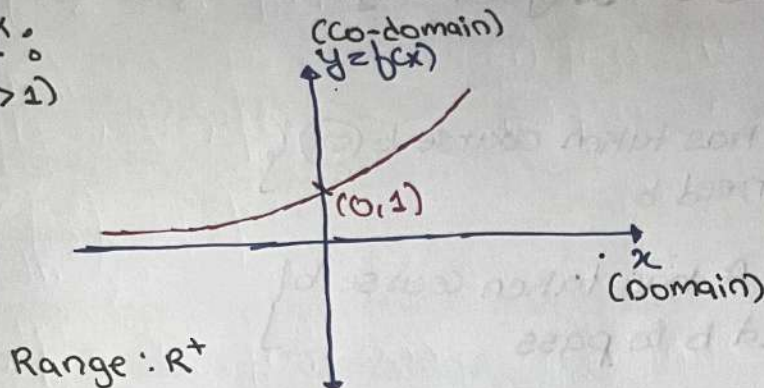 (Co-domain)
y=f(x)
>1)
(0,1)
x
(Domain)
Range : R⁺